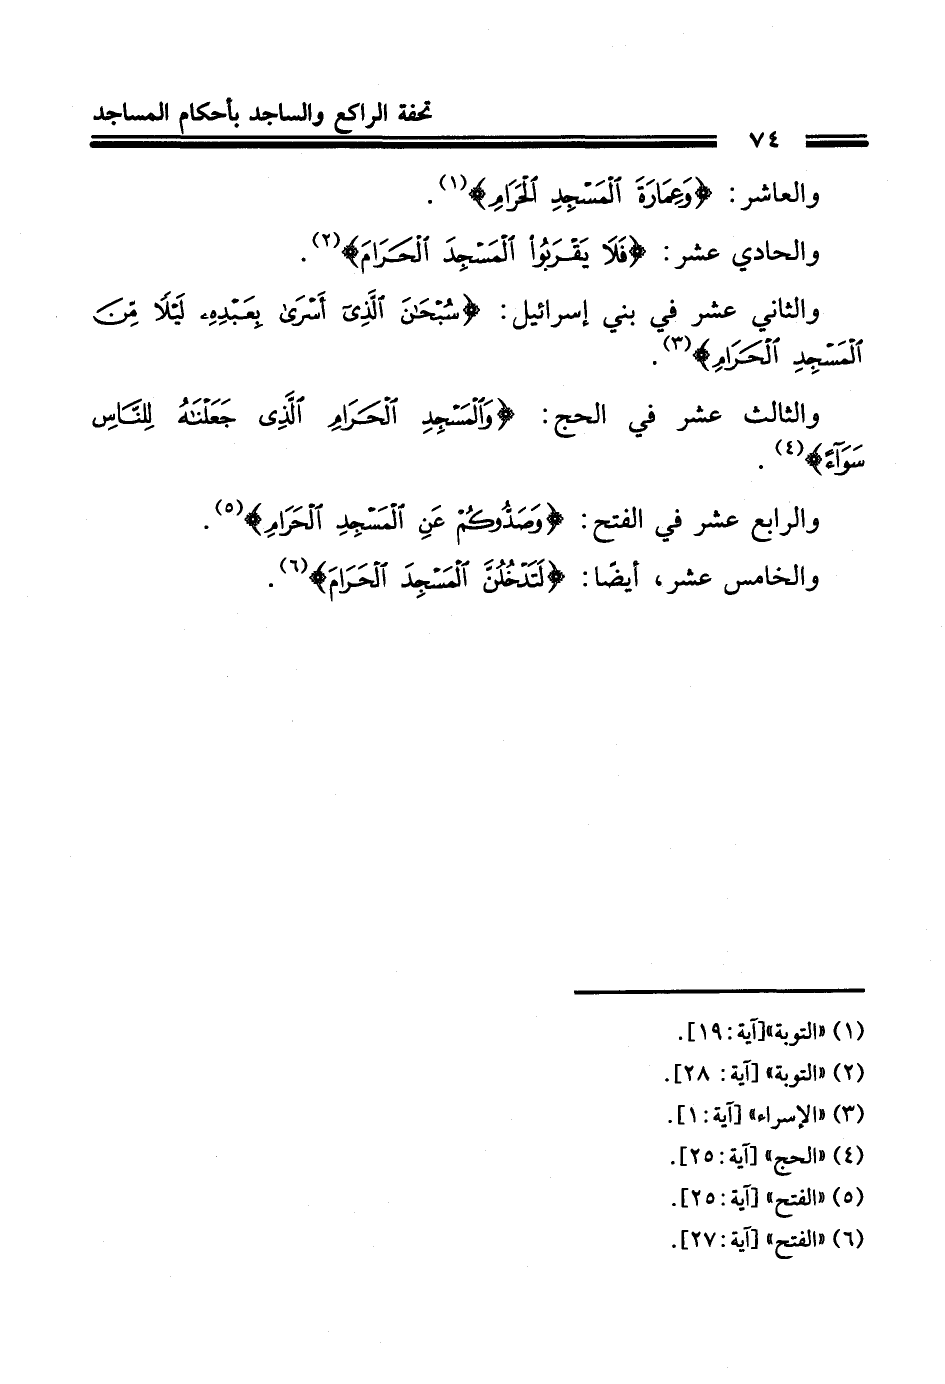 تحفة الراكع والساجد بأحكام المساجد
٧٤
والعاشر: ﴿وَعِمَارَةَ ٱلْمَسْجِدِ ٱلْحَرَامِ﴾(١).
والحادي عشر: ﴿فَلَا يَقْرَبُوا۟ ٱلْمَسْجِدَ ٱلْحَرَامَ﴾(٢).
والثاني عشر في بني إسرائيل: ﴿سُبْحَٰنَ ٱلَّذِىٓ أَسْرَىٰ بِعَبْدِهِۦ لَيْلًا مِّنَ
ٱلْمَسْجِدِ ٱلْحَرَامِ﴾(٣).
والثالث عشر في الحج: ﴿وَٱلْمَسْجِدِ ٱلْحَرَامِ ٱلَّذِى جَعَلْنَٰهُ لِلنَّاسِ
سَوَآءً﴾(٤).
والرابع عشر في الفتح: ﴿وَصَدُّوكُمْ عَنِ ٱلْمَسْجِدِ ٱلْحَرَامِ﴾(٥).
والخامس عشر، أيضًا: ﴿لَتَدْخُلُنَّ ٱلْمَسْجِدَ ٱلْحَرَامَ﴾(٦).
(١) «التوبة»[آية: ١٩].
(٢) «التوبة» [آية: ٢٨].
(٣) «الإسراء» [آية: ١].
(٤) «الحج» [آية: ٢٥].
(٥) «الفتح» [آية: ٢٥].
(٦) «الفتح» [آية: ٢٧].